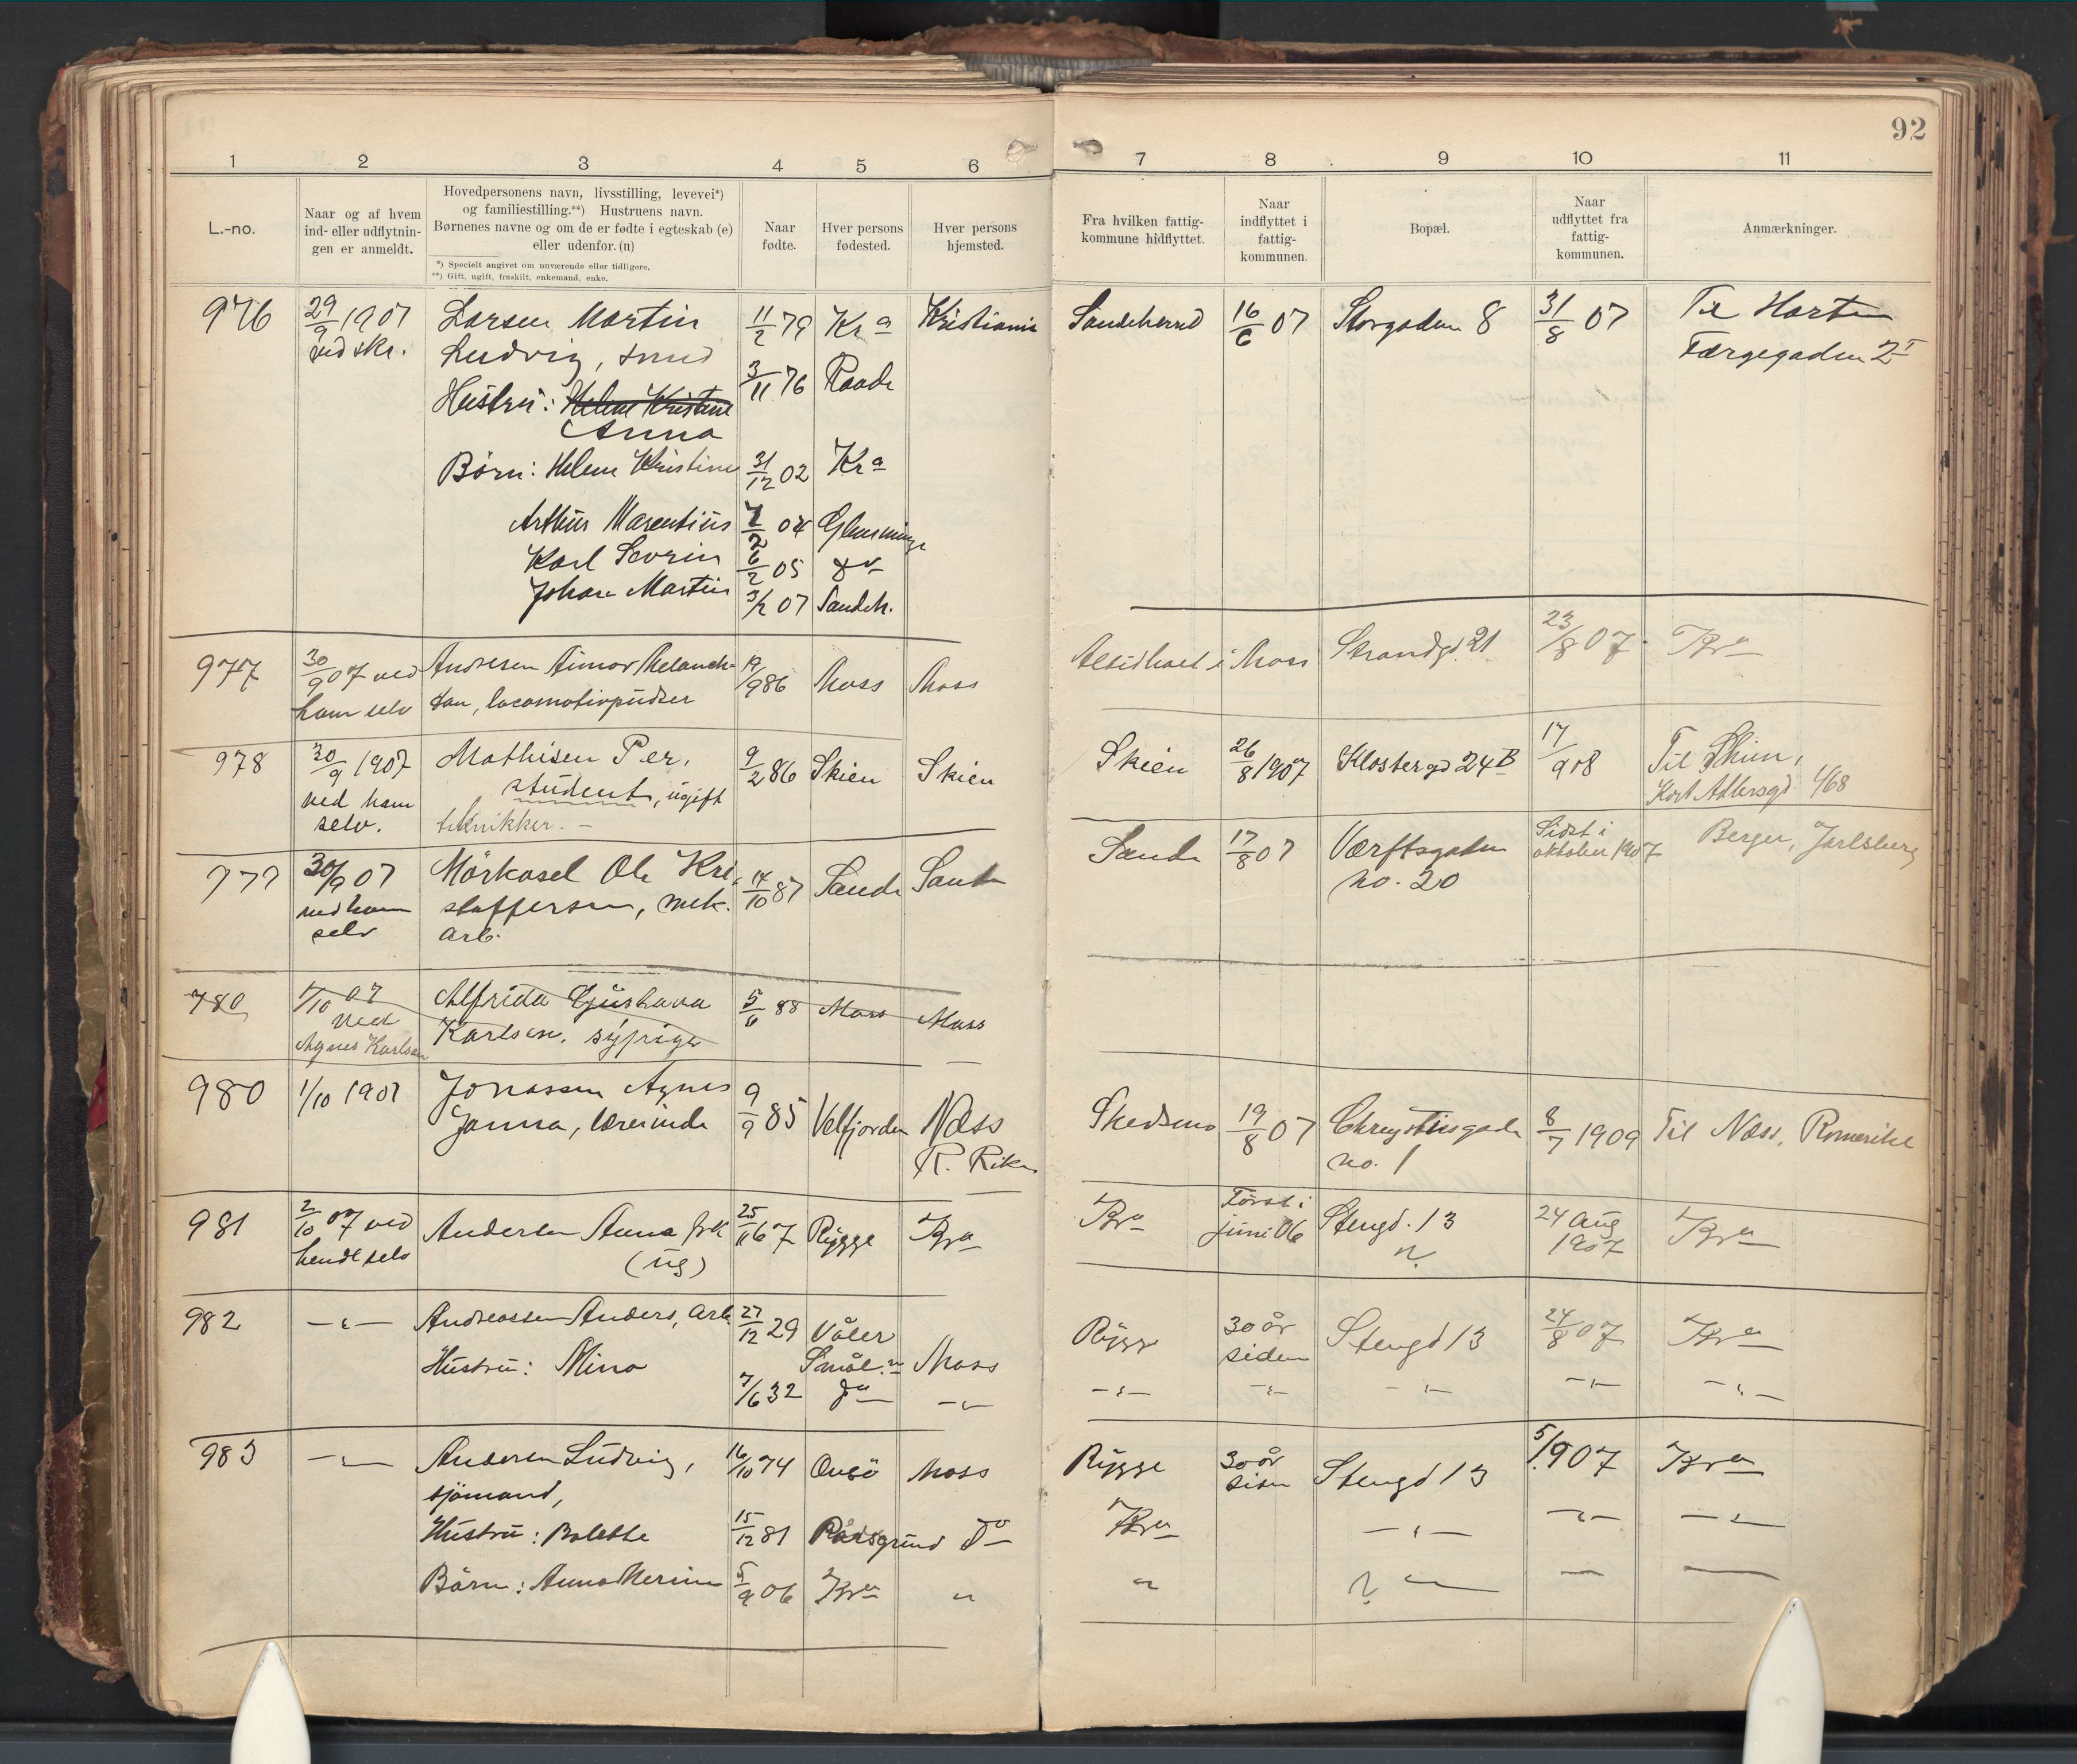 92
1 2 3 4 5 6 7 8 9 10 11
L.-no.
Naar og af hvem
ind- eller udflytnin-
gen er anmeldt.
Hovedpersonens navn, livsstilling, levevei*)
og familiestilling.**) Hustruens navn.
Børnenes navne og om de er fødte i egteskab (e)
eller udenfor. (u)
*) Specielt angivet om nuværende eller tidligere.
**) Gift, ugift, fraskilt, enkemand, enke.
Naar
fødte.
Hver persons
fødested.
Hver persons
hjemsted.
Fra hvilken fattig-
kommune hidflyttet.
Naar
indflyttet i
fattig-
kommunen.
Bopæl.
Naar
udflyttet fra
fattig-
kommunen.
Anmærkninger.
976 29/9 1907 Larsen Martin 11/2 79 Kra Kristiania Sandeherred 16/6 07 Storgaden 8 31/8 07 Til Horten
ved skr. Ludvig, smed Færgegaden 2
Hustru: Helene Kristine 3/11 76 Raade
Anna
Børn: Helene Kristine 31/12 02 Kra
Arthur Marentius 04 Glemminge
Karl Severin 6/2 05 do
Johan Martin 3/2 07 Sandeh.
977 30/9 07 ved Andresen Melanch- 19/9 86 Moss Moss Altid boet i Moss Strandgd. 21 23/8 07 Kra
ham selv ton, locomotivpudser
978 30/9 1907 Mathisen Per, 9/2 86 Skien Skien Skien 26/8 1907 Klostergd 24B 17/9 08 Til Skien,
ved ham student, ugift Kort Adlersgd. 468
selv. teknikker. —
979 30/9 07 Mörkasel Ole Kri- 14/10 87 Sande Sande Sande 17/8 07 Værftsgaden Sidst i Berger, Jarlsberg
ved ham stoffersen, mek. no. 20 oktober 1907
selv arb.
980 1/10 07 Alfrida Gustava 5/6 88 Moss Moss
ved Karlsen, sypige
Agnes Karlsen
980 1/10 1907 Jonassen Agnes 9/9 85 Velfjorden Næss Skedsmo 19/8 07 8/7 1909 Til Næss, Romerike
Janna, lærerinde R. Rike no. 1
981 2/10 07 ved Andersen Anna frk 25/11 67 Rygge Kra Kra Først i Stengd. 13 24 aug Kra
hende selv (ug) juni 06 1907
982 -"- Andreassen Anders, arb. 27/12 29 Våler Moss Rygge 30 år Stengd 13 24/8 07 Kra
Smål.n siden
Hustru: Mina 7/6 32 do -"- -"- -"- -"- -"- -"-
983 -"- Andersen Ludvig, 16/10 74 Onsö Moss Rygge 30 år Stengd 13 5/9 07 Kra
sjömand, siden
Hustru: Bolette 15/12 81 Rådsgrund do Kra -"- -"- -"-
Børn: Anna 5/9 06 Kra " " ? — — —